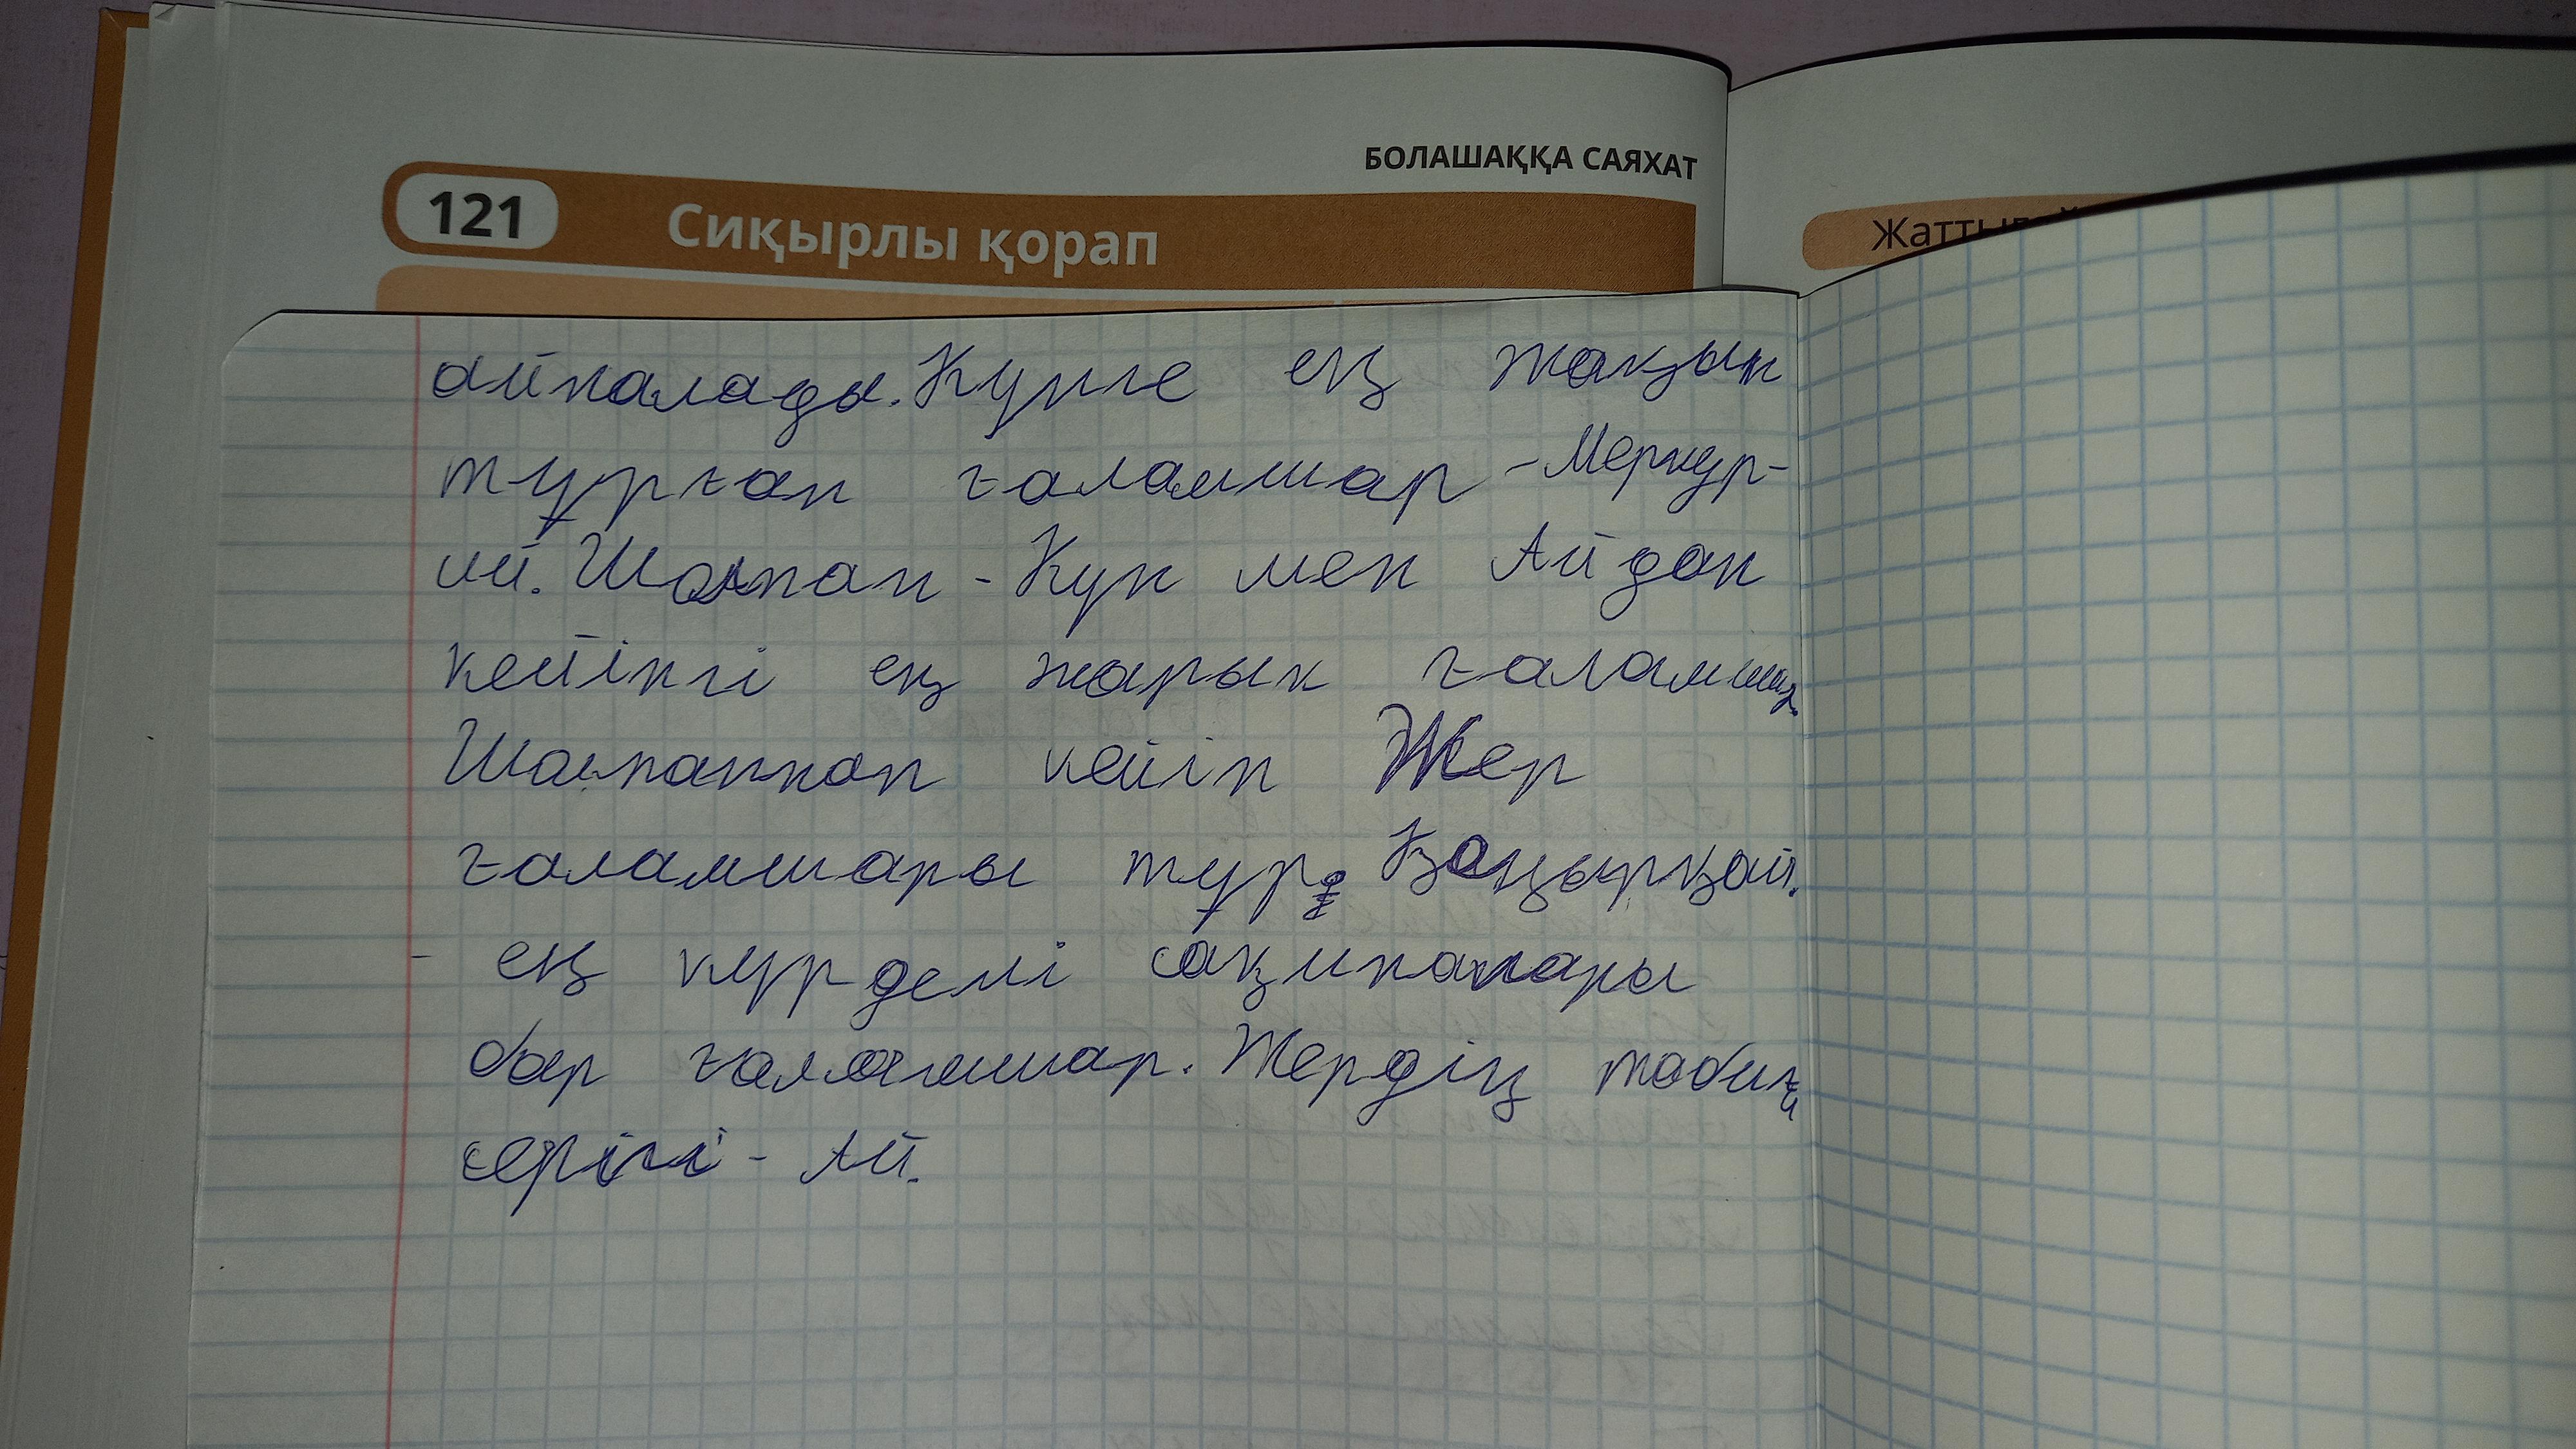 БОЛАШАҚҚА САЯХАТ
121 Сиқырлы қорап
айналады. Күнге ең жақын
тұрған ғаламшар - Меркур-
ий. Шолпан - Күн мен Айдан
кейінгі ең жарық ғаламшар.
Шолпаннан кейін Жер
ғаламшары тұр. Қоңырқай
- ең күрделі сақиналары
бар ғаламшар. Жердің табиғи
серігі - Ай.